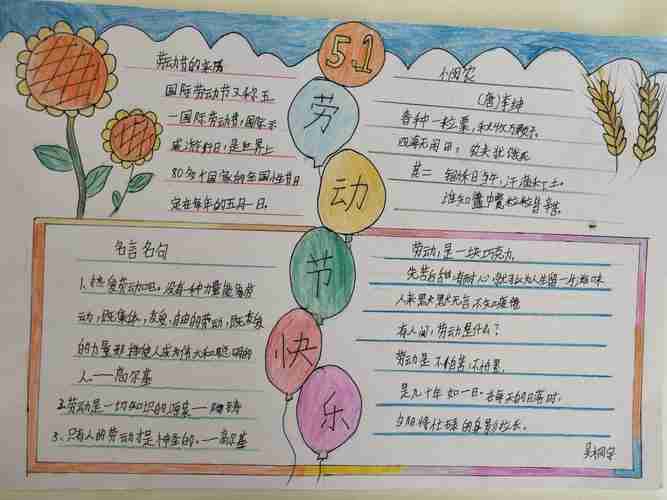 5.1
劳
动
节
快
乐
劳动节的来历
国际劳动节又称五
一国际劳动节,国际示
威游行日,是世界上
80多个国家的全国性节日
定在每年的五月一日。
(唐)李绅
春种一粒粟,秋收万颗子。
四海无闲田,农夫犹饿死
其二 锄禾日当午,汗滴禾下土。
谁知盘中餐粒粒皆辛苦。
名言名句
1.热爱劳动吧。没有一种力量能像劳
动,既集体,友爱,自由的劳动,既友爱
的力量那样使人成为伟大和聪明的
人。——高尔基
2.劳动是一切知识的源泉——陶铸
3.只有人的劳动才是神圣的。——高尔基
劳动,是一块巧克力,
先苦后甜,有耐心,就为人生留一片滋味
人来
有人问,劳动是什么?
劳动是不怕苦,不怕累,
是几十年如一日,在每天的日落时,
夕阳将忙碌的身影拉长。